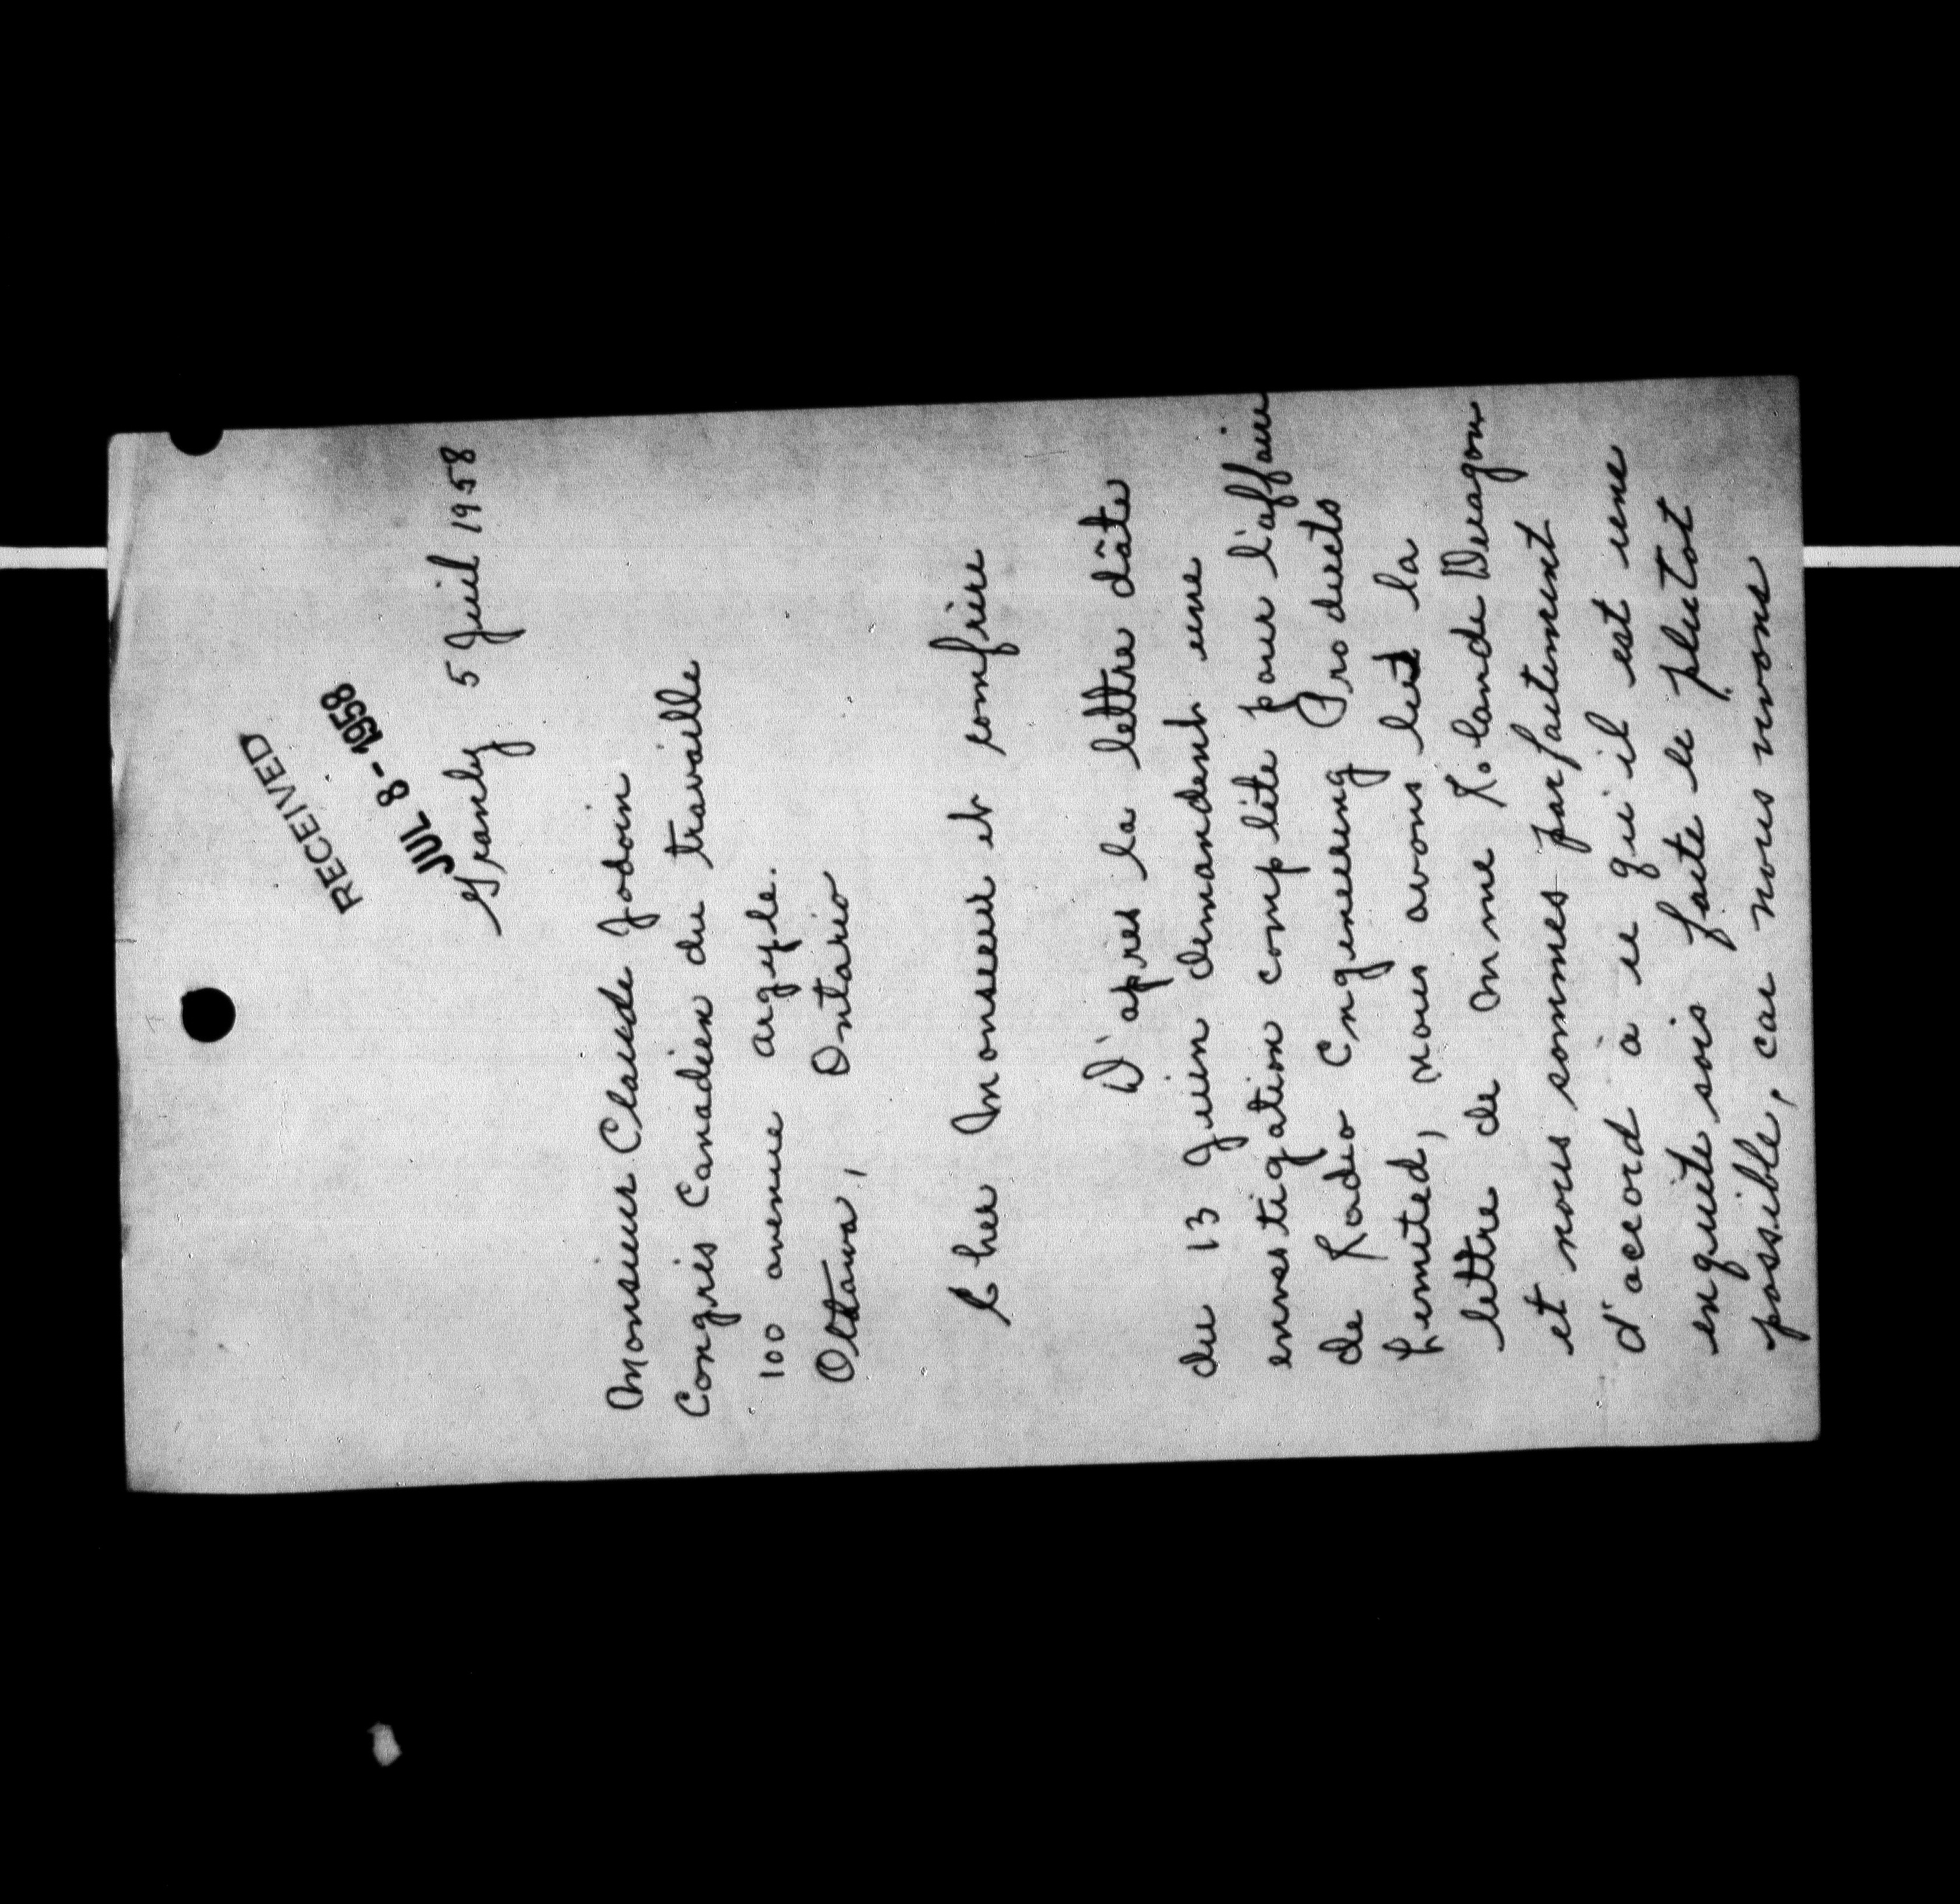 RECEIVED
JUL 8 - 1958
Granby 5 Juil 1958
Monsieur Claude Jodoin
Congrès Canadien du travaille
100 avenue argyle.
Ottawa, Ontario
Cher Monsieur et confrère
D'apres la lettre dâte
du 13 Juin demandent une
investigation complète pour l'affaire
de Radio Engineering Products
Limited, nous avons lut la
lettre de Mme R. lande Deragon
et nous sommes parfaitement
d'accord à ce qui il est une
enquête sois faite le plutot
possible, car nous venons